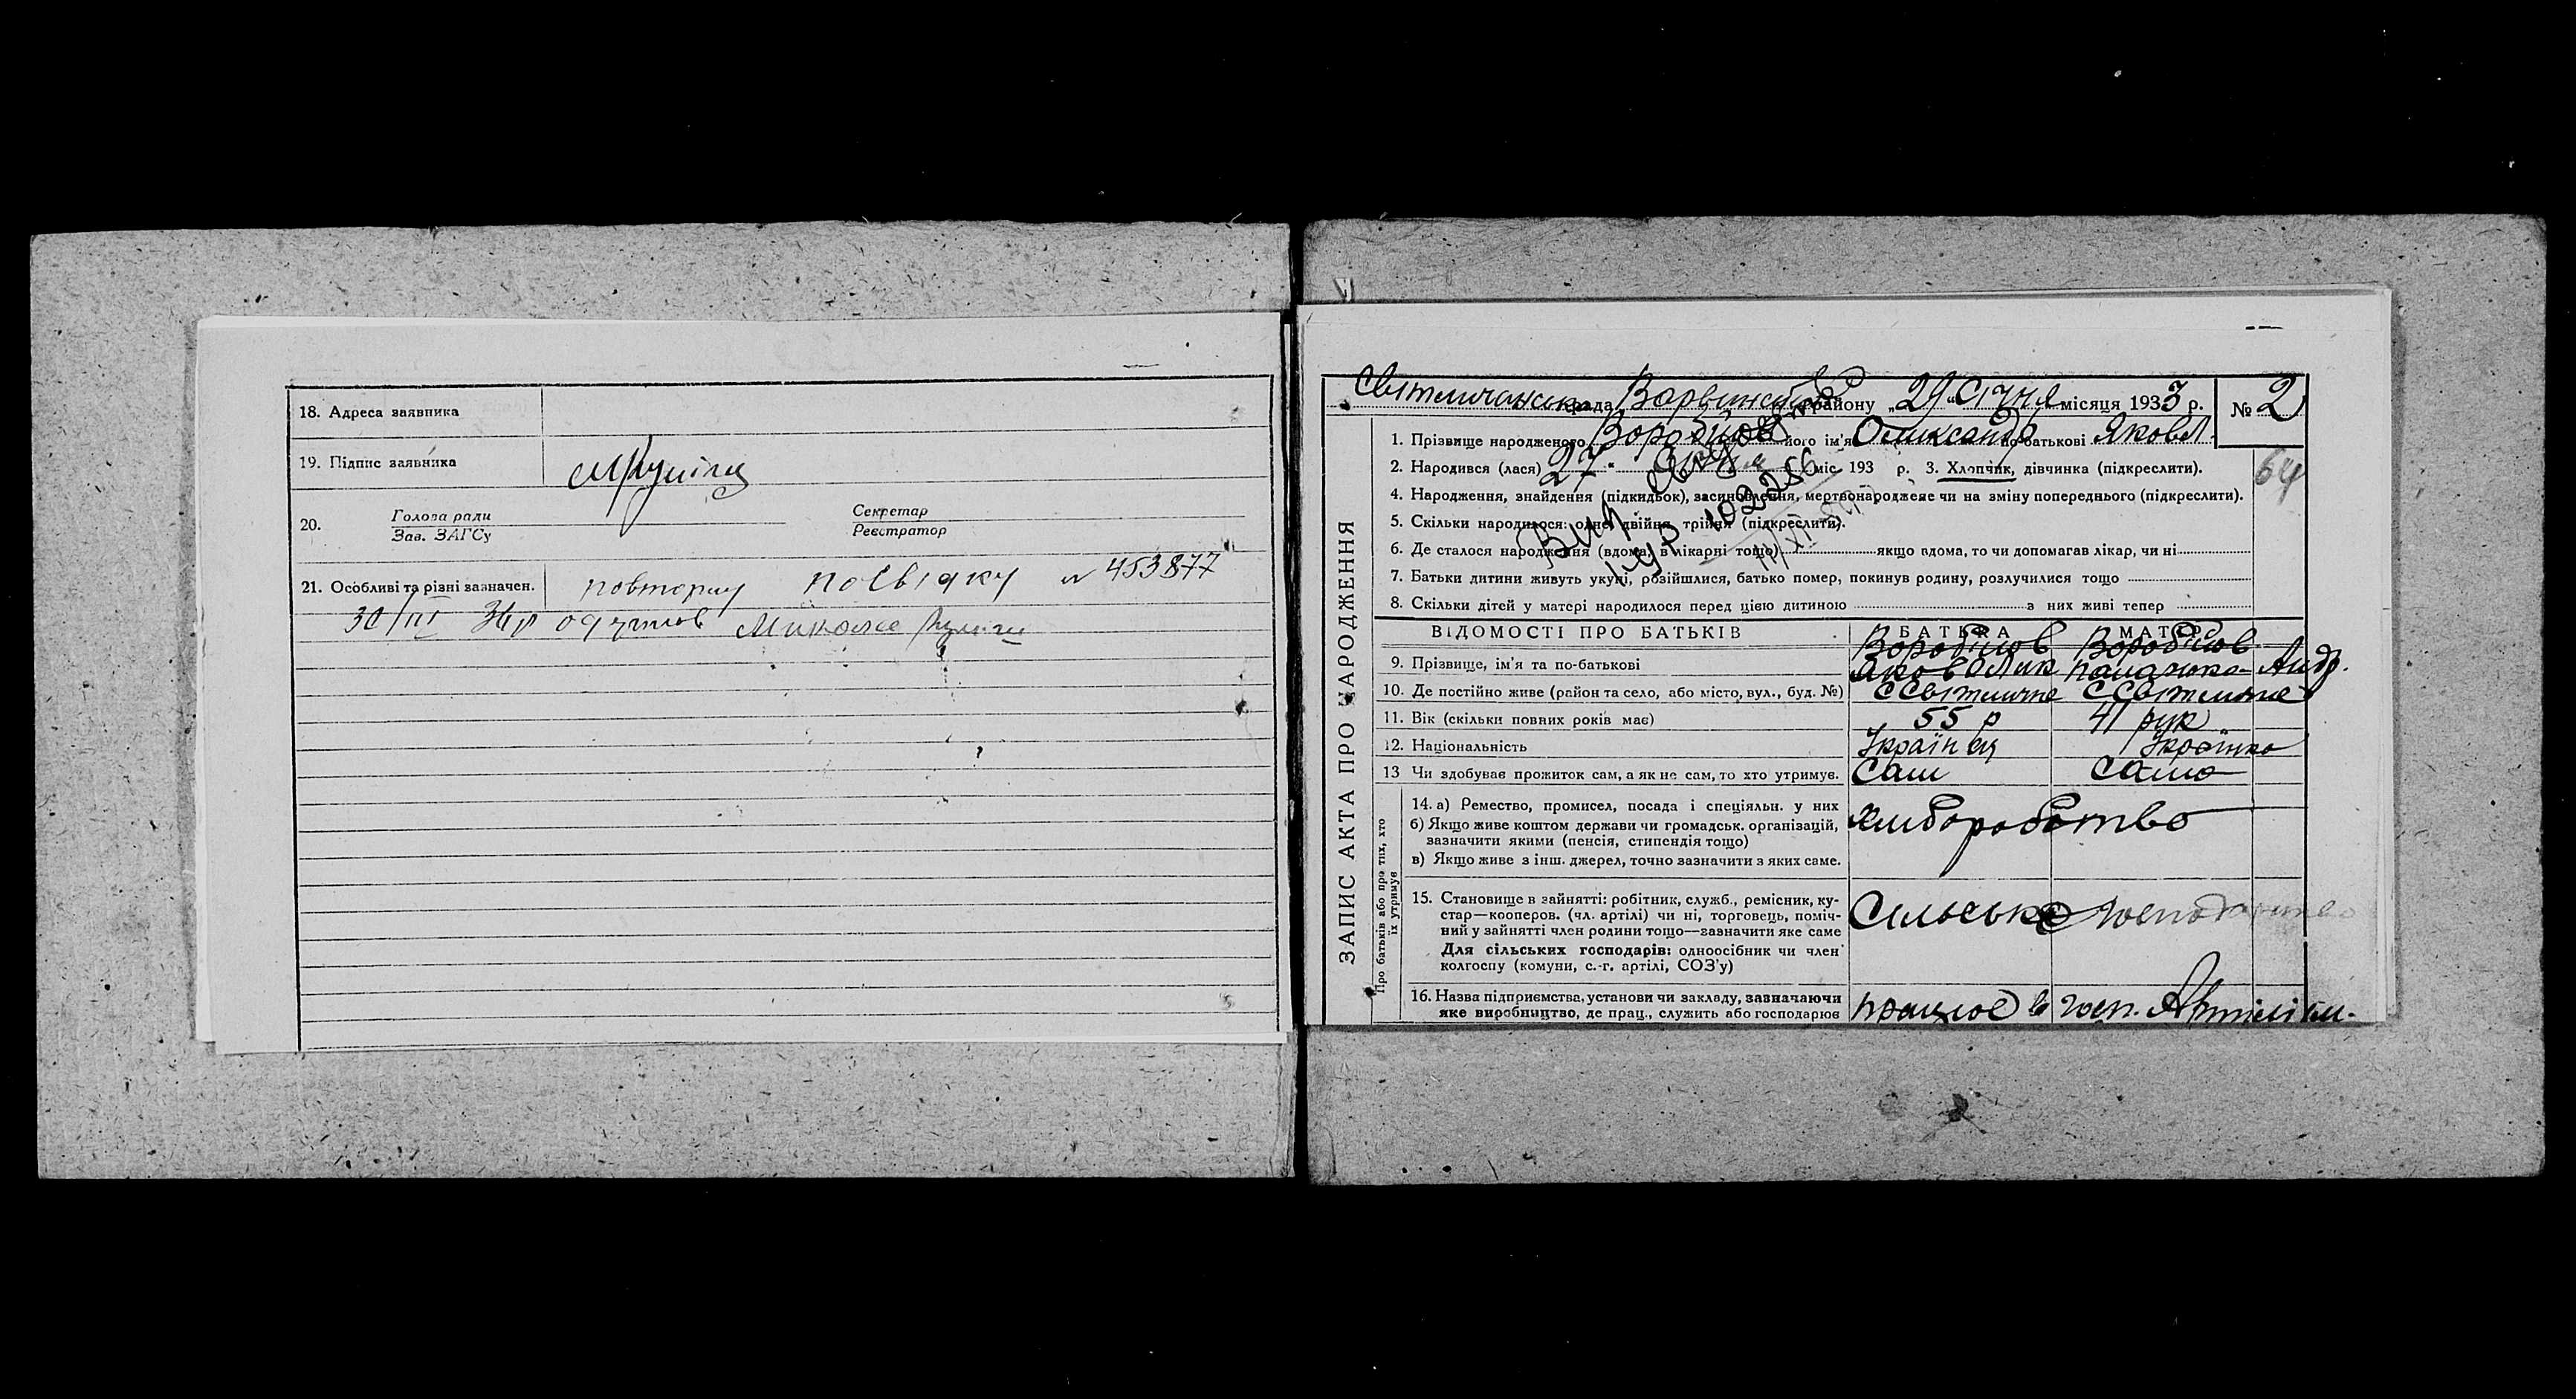 18. Адреса заявника
19. Підпис заявника
20. Голова ради Секретар
Зав. ЗАГСу Реєстратор
21. Особливі та різні зазначен. повторну посвідку № 453877
30/III 34 р одержав Микола
Світличанська рада Варвинськ району „29“ Січня місяця 1933 р. № 2
1. Прізвище народженого Воробйов його ім'я Олександр по-батькові Яковл.
2. Народився (лася) 27 міс. 193 р. 3. Хлопчик, дівчинка (підкреслити).
64
4. Народження, знайдення (підкидьок), засиновлення, мертвонароджене чи на зміну попереднього (підкреслити).
5. Скільки народилося: одне, двійня, трійня (підкреслити).
6. Де сталося народження (вдома, в лікарні тощо) якщо вдома, то чи допомагав лікар, чи ні
7. Батьки дитини живуть укупі, розійшлися, батько помер, покинув родину, розлучилися тощо
8. Скільки дітей у матері народилося перед цією дитиною з них живі тепер
Вид.
102286
ЗАПИС АКТА ПРО НАРОДЖЕННЯ
ВІДОМОСТІ ПРО БАТЬКІВ БАТЬКА МАТЕРІ
Воробйов Воробйов
9. Прізвище, ім'я та по-батькові Яков Палажка Андр.
10. Де постійно живе (район та село, або місто, вул., буд. №) С Світличне С Світличне
11. Вік (скільки повних років має) 55 р 41 рук
12. Національність Українця Українка
13 Чи здобуває прожиток сам, а як не сам, то хто утримує. Сам Сама
Про батьків або про тих, хто їх утримує
14. а) Ремество, промисел, посада і спеціяльн. у них
б) Якщо живе коштом держави чи громадськ. організацій, Хлиборобство
зазначити якими (пенсія, стипендія тощо)
в) Якщо живе з інш. джерел, точно зазначити з яких саме.
15. Становище в зайнятті: робітник, служб., ремісник, ку-
стар—кооперов. (чл. артілі) чи ні, торговець, поміч- Сільське господарство
ний у зайнятті член родини тощо—зазначити яке саме
Для сільських господарів: одноосібник чи член
колгоспу (комуни, с.-г. артілі, СОЗ'у)
16. Назва підприємства, установи чи закладу, зазначаючи
яке виробництво, де прац., служить або господарює працює в госп. Артілі їм.